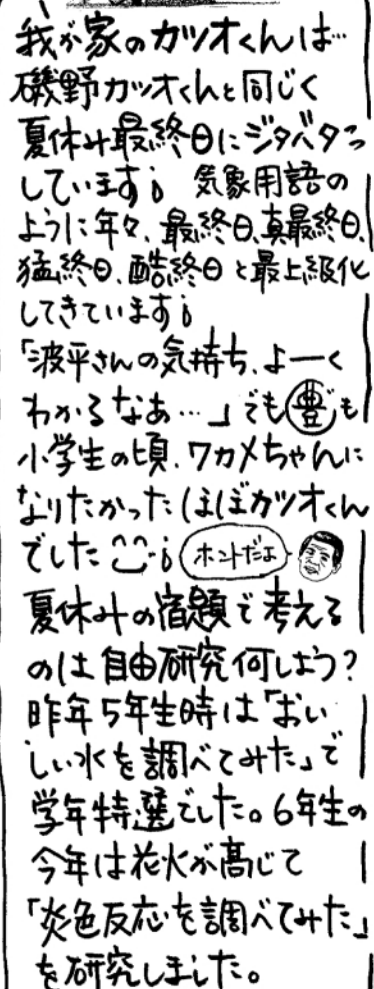 我が家のカツオくんは…
磯野カツオくんと同じく
夏休み最終日にジタバタっ
しています💧 気象用語の
ように年々、最終日、真最終日、
猛終日、酷終日と最上級化
してきています💧
「波平さんの気持ち、よーく
わかるなあ…」でも豊も
小学生の頃、ワカメちゃんに
なりたかったほぼカツオくん
でした^^💧 ホントだよ
夏休みの宿題で考える
のは自由研究何しよう?
昨年5年生時は「おい
しい水を調べてみた」で
学年特選でした。6年生の
今年は花火が高じて
「炎色反応を調べてみた」
を研究しました。